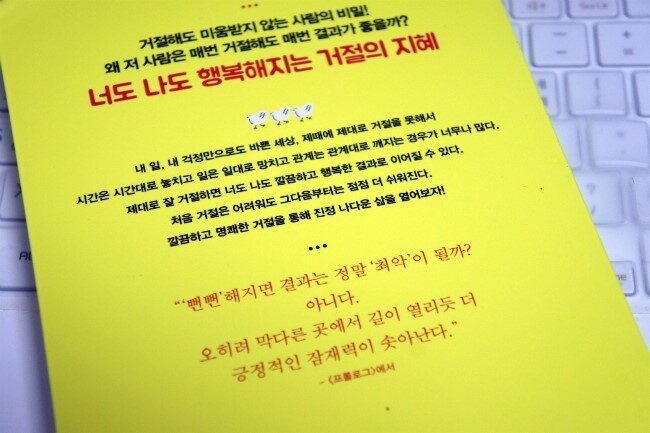 거절해도 미움받지 않는 사람의 비밀!
왜 저 사람은 매번 거절해도 매번 결과가 좋을까?
너도 나도 행복해지는 거절의 지혜
내 일, 내 걱정만으로도 바쁜 세상, 제때에 제대로 거절을 못해서
시간은 시간대로 놓치고 일은 일대로 망치고 관계는 관계대로 깨지는 경우가 너무나 많다.
제대로 잘 거절하면 너도 나도 깔끔하고 행복한 결과로 이어질 수 있다.
처음 거절은 어려워도 그다음부터는 점점 더 쉬워진다.
깔끔하고 명쾌한 거절을 통해 진정 나다운 삶을 열어보자!
“‘뻔뻔’해지면 결과는 정말 ‘최악’이 될까?
아니다.
오히려 막다른 곳에서 길이 열리듯 더
긍정적인 잠재력이 솟아난다.”
- <프롤로그>에서